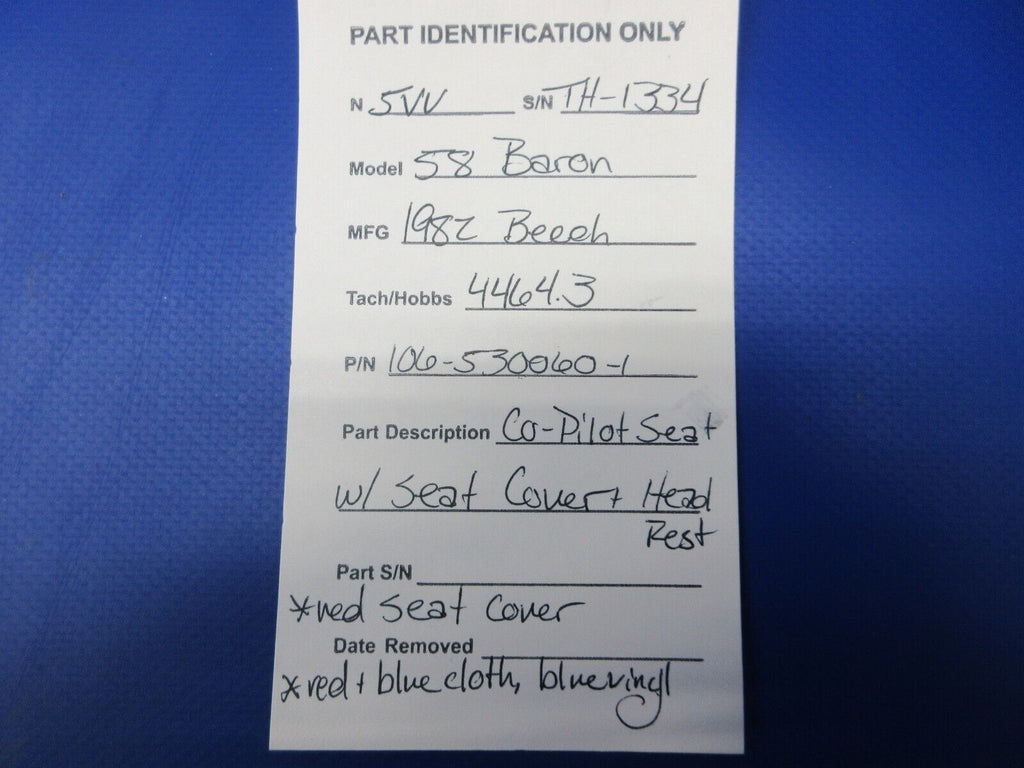 PART IDENTIFICATION ONLY
N 5VV S/N TH-1334
Model 58 Baron
MFG 1982 Beech
Tach/Hobbs 4464.3
P/N 106-530060-1
Part Description Co-Pilot Seat
w/ Seat Cover + Head
Rest
Part S/N
*red seat cover
Date Removed
*red + blue cloth, blue vinyl